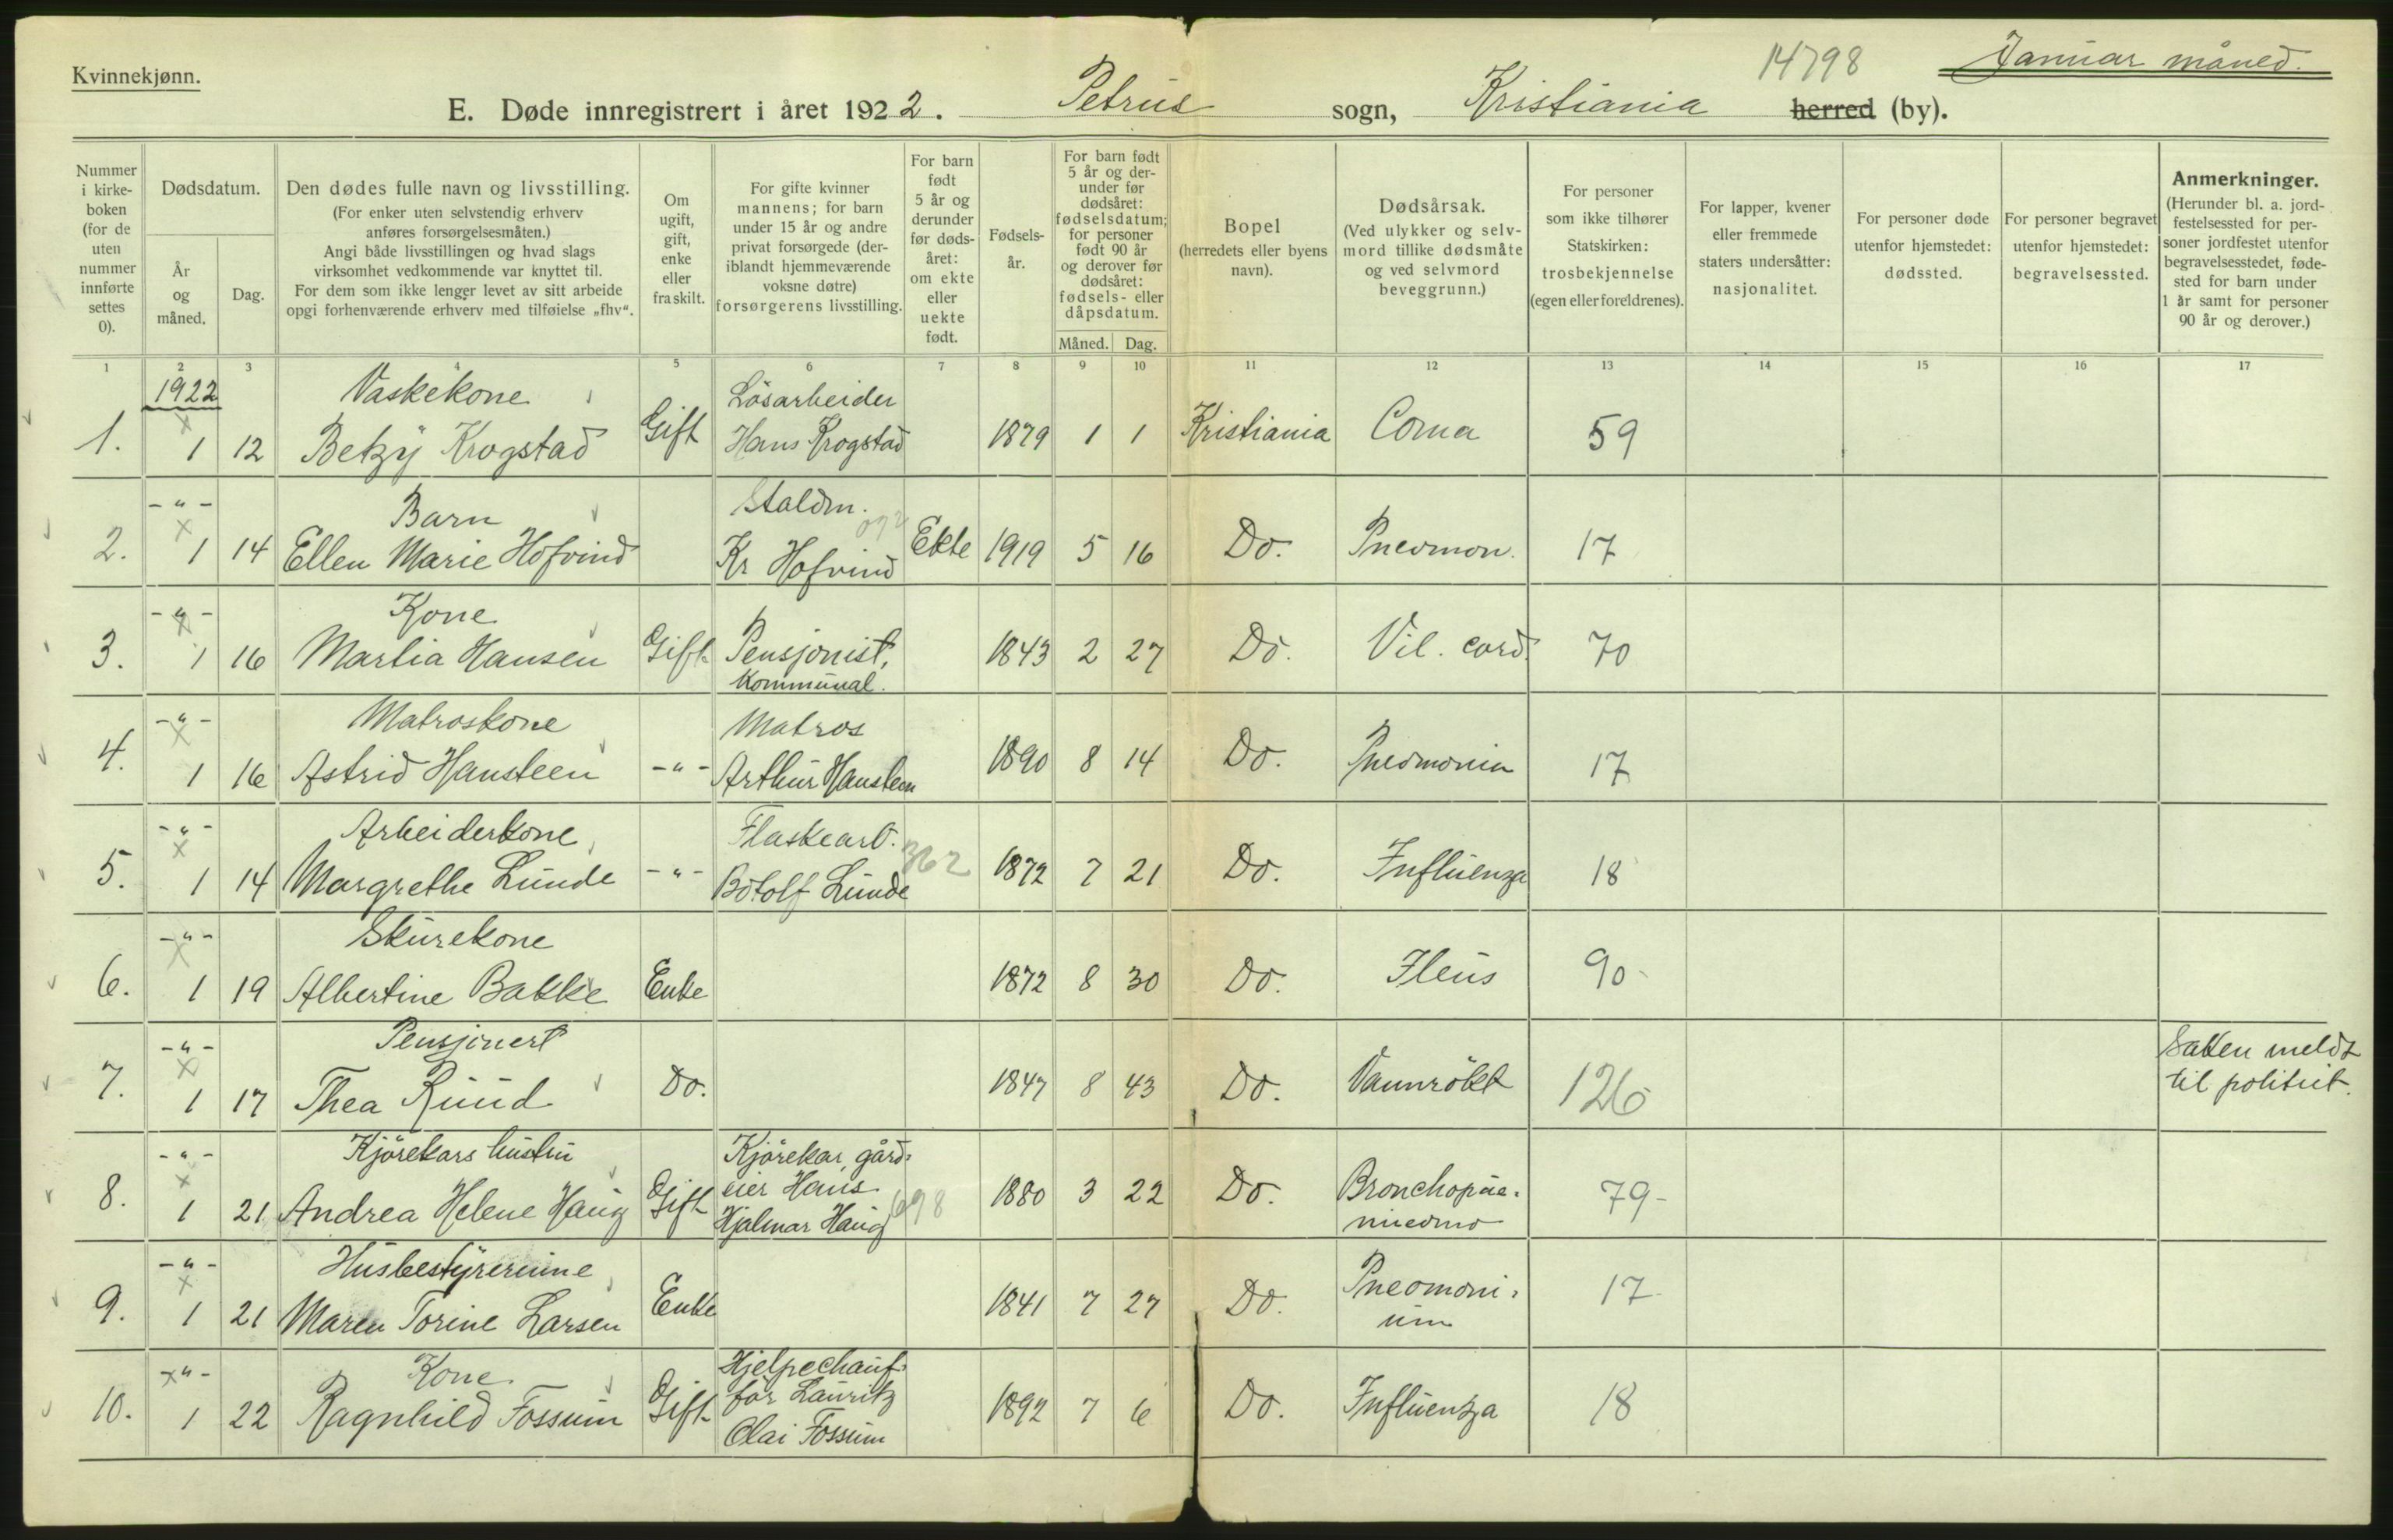 Kvinnekjønn.
14798
Januar måned.
E. Døde innregistrert i året 1922. Petrus sogn, Kristiania herred (by).
Nummer i kirke- boken (for de uten nummer innførte settes 0).
Dødsdatum.
År og måned.
Dag.
Den dødes fulle navn og livsstilling.
(For enker uten selvstendig erhverv anføres forsørgelsesmåten.)
Angi både livsstillingen og hvad slags virksomhet vedkommende var knyttet til.
For dem som ikke lenger levet av sitt arbeide opgi forhenværende erhverv med tilføielse „fhv“.
Om ugift, gift, enke eller fraskilt.
For gifte kvinner mannens; for barn under 15 år og andre privat forsørgede (der- iblandt hjemmeværende voksne døtre) forsørgerens livsstilling.
For barn født 5 år og derunder før døds- året: om ekte eller uekte født.
Fødsels- år.
For barn født 5 år og der- under før dødsåret: fødselsdatum; for personer født 90 år og derover før dødsåret: fødsels- eller dåpsdatum.
Måned. Dag.
Bopel (herredets eller byens navn).
Dødsårsak. (Ved ulykker og selv- mord tillike dødsmåte og ved selvmord beveggrunn.)
For personer som ikke tilhører Statskirken: trosbekjennelse (egen eller foreldrenes).
For lapper, kvener eller fremmede staters undersåtter: nasjonalitet.
For personer døde utenfor hjemstedet: dødssted.
For personer begravet utenfor hjemstedet: begravelsessted.
Anmerkninger. (Herunder bl. a. jord- festelsessted for per- soner jordfestet utenfor begravelsesstedet, føde- sted for barn under 1 år samt for personer 90 år og derover.)
1 2 3 4 5 6 7 8 9 10 11 12 13 14 15 16 17
1922 Vaskekone Lösarbeider
1. 1 12 Betzy Krogstad Gift Hans Krogstad 1879 1 1 Kristiania Coma 59
-"- Barn Staldm.
2. 1 14 Ellen Marie Hofvind Kr Hofvind Ekte 1919 5 16 Do. Pneomon. 17
-"- Kone
3. 1 16 Martia Hansen Gift Pensjonist, 1843 2 27 Do. Vil. cord. 70
Kommunal.
-"- Matroskone Matros
4. 1 16 Astrid Hansteen -"- Arthur Hansteen 1890 8 14 Do. Pneomonia 17
-"- Arbeiderkone Flaskearb. 362
5. 1 14 Margrethe Lunde -"- Botolf Lunde 1872 7 21 Do. Influenza 18
-"- Skurekone
6. 1 19 Albertine Bakke Enke 1872 8 30 Do. Ileus 90
-"- Pensjonert
7. 1 17 Thea Ruud Do. 1847 8 43 Do. Vannrökt 126 Saken meldt
til politiet.
-"- Kjörekars hustru Kjörekar, gård=
eier Hans
8. 1 21 Andrea Helene Haug Gift Hjalmar Haug 698 1880 3 22 Do. Bronchopne= 79
-"- Husbestyrerinne
9. 1 21 Maren Torine Larsen Enke 1841 7 27 Do. Pneomoni= 17
um
-"- Kone Hjelpechauf=
för Lauritz
10. 1 22 Ragnhild Fossum Gift Olai Fossum 1892 7 6 Do. Influenza 18